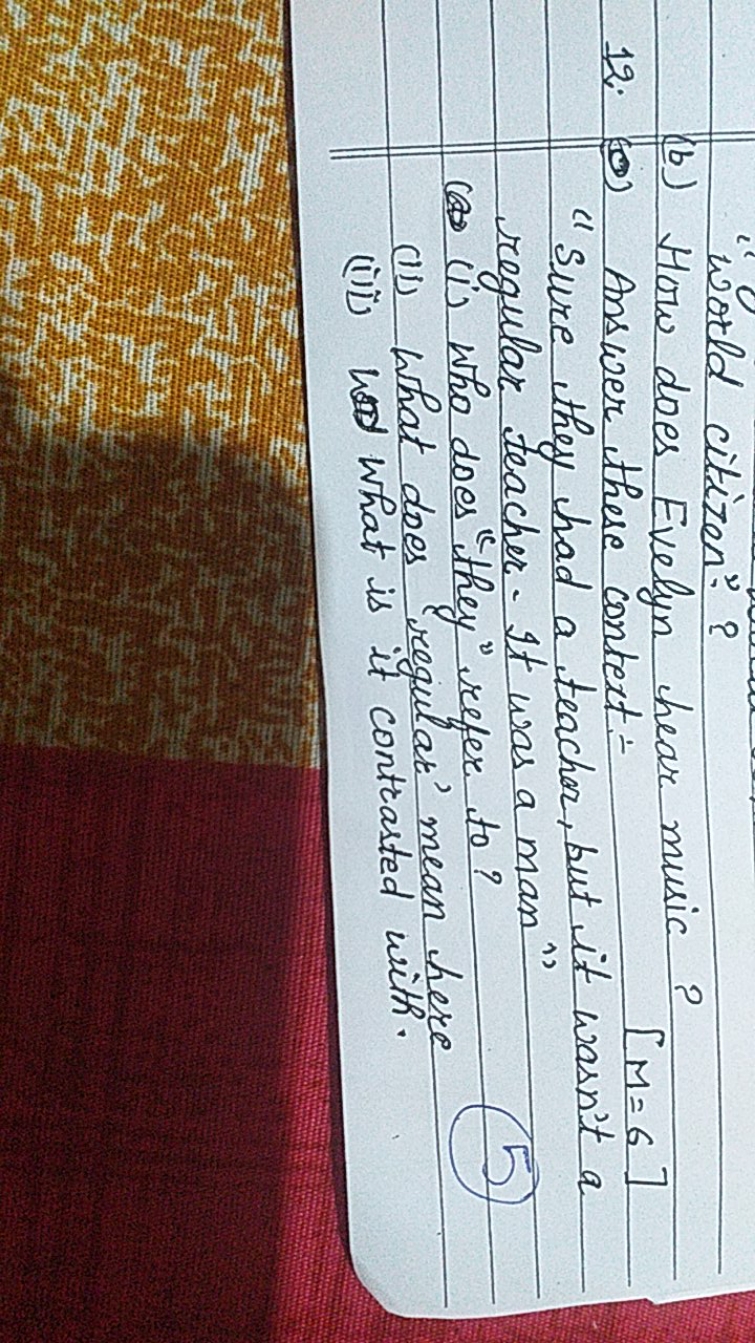 world citizen" ?
(b) How does Evelyn hear music ?
[M=6]
12. Answer these context:-
"Sure they had a teacher, but it wasn't a
regular teacher. It was a man"
(i) Who does "they" refer to?
(ii) What does 'regular' mean here
(iii) What is it contrasted with.
5